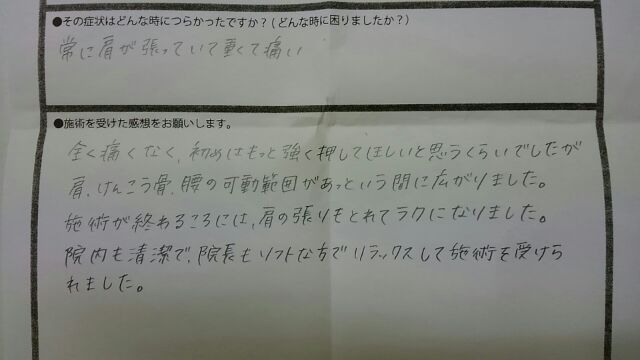 ●その症状はどんな時につらかったですか？(どんな時に困りましたか？)
常に肩が張っていて重くて痛い
●施術を受けた感想をお願いします。
全く痛くなく、初めはもっと強く押してほしいと思うくらいでしたが
肩、けんこう骨、腰の可動範囲があっという間に広がりました。
施術が終わるころには、肩の張りもとれてラクになりました。
院内も清潔で、院長もソフトな方でリラックスして施術を受けら
れました。